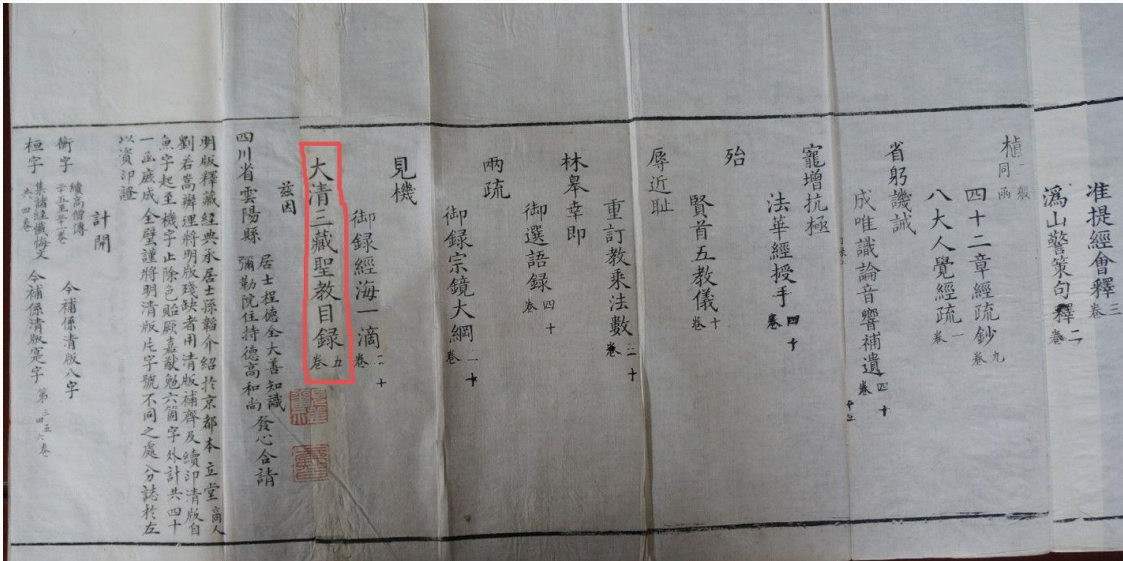 准提經會釋三卷
溈山警策句釋二卷
植一般同函
四十二章經疏鈔九卷
八大人覺經疏一卷
省躬譏誡
成唯識論音響補遺四十卷
寵增抗極
法華經授手四十卷
殆
賢首五教儀十卷
辱近耻
重訂教乘法數二十卷
林皋幸即
御選語録四十卷
兩疏
御録宗鏡大綱二十卷
見機
御録經海一滴二十卷
大清三藏聖教目録五卷
茲因
四川省雲陽縣 居士程德全大善知識 彌勒院住持德高和尚 發心合請
明版釋藏經典承居士孫韜介紹於京都本立堂商人
劉若嵩辦理將明版殘缺者用清版補齊及續印清版自
魚字起至機字止除色貽厥嘉猷勉六箇字外計共四十
一函底成全璧謹將明清版片字號不同之處分誌於左
以資印證
計開
衡字 續高僧傳 今補係清版八字
桓字 集諸經禮懺文 共四卷 今補係清版寔字 第三四五六卷